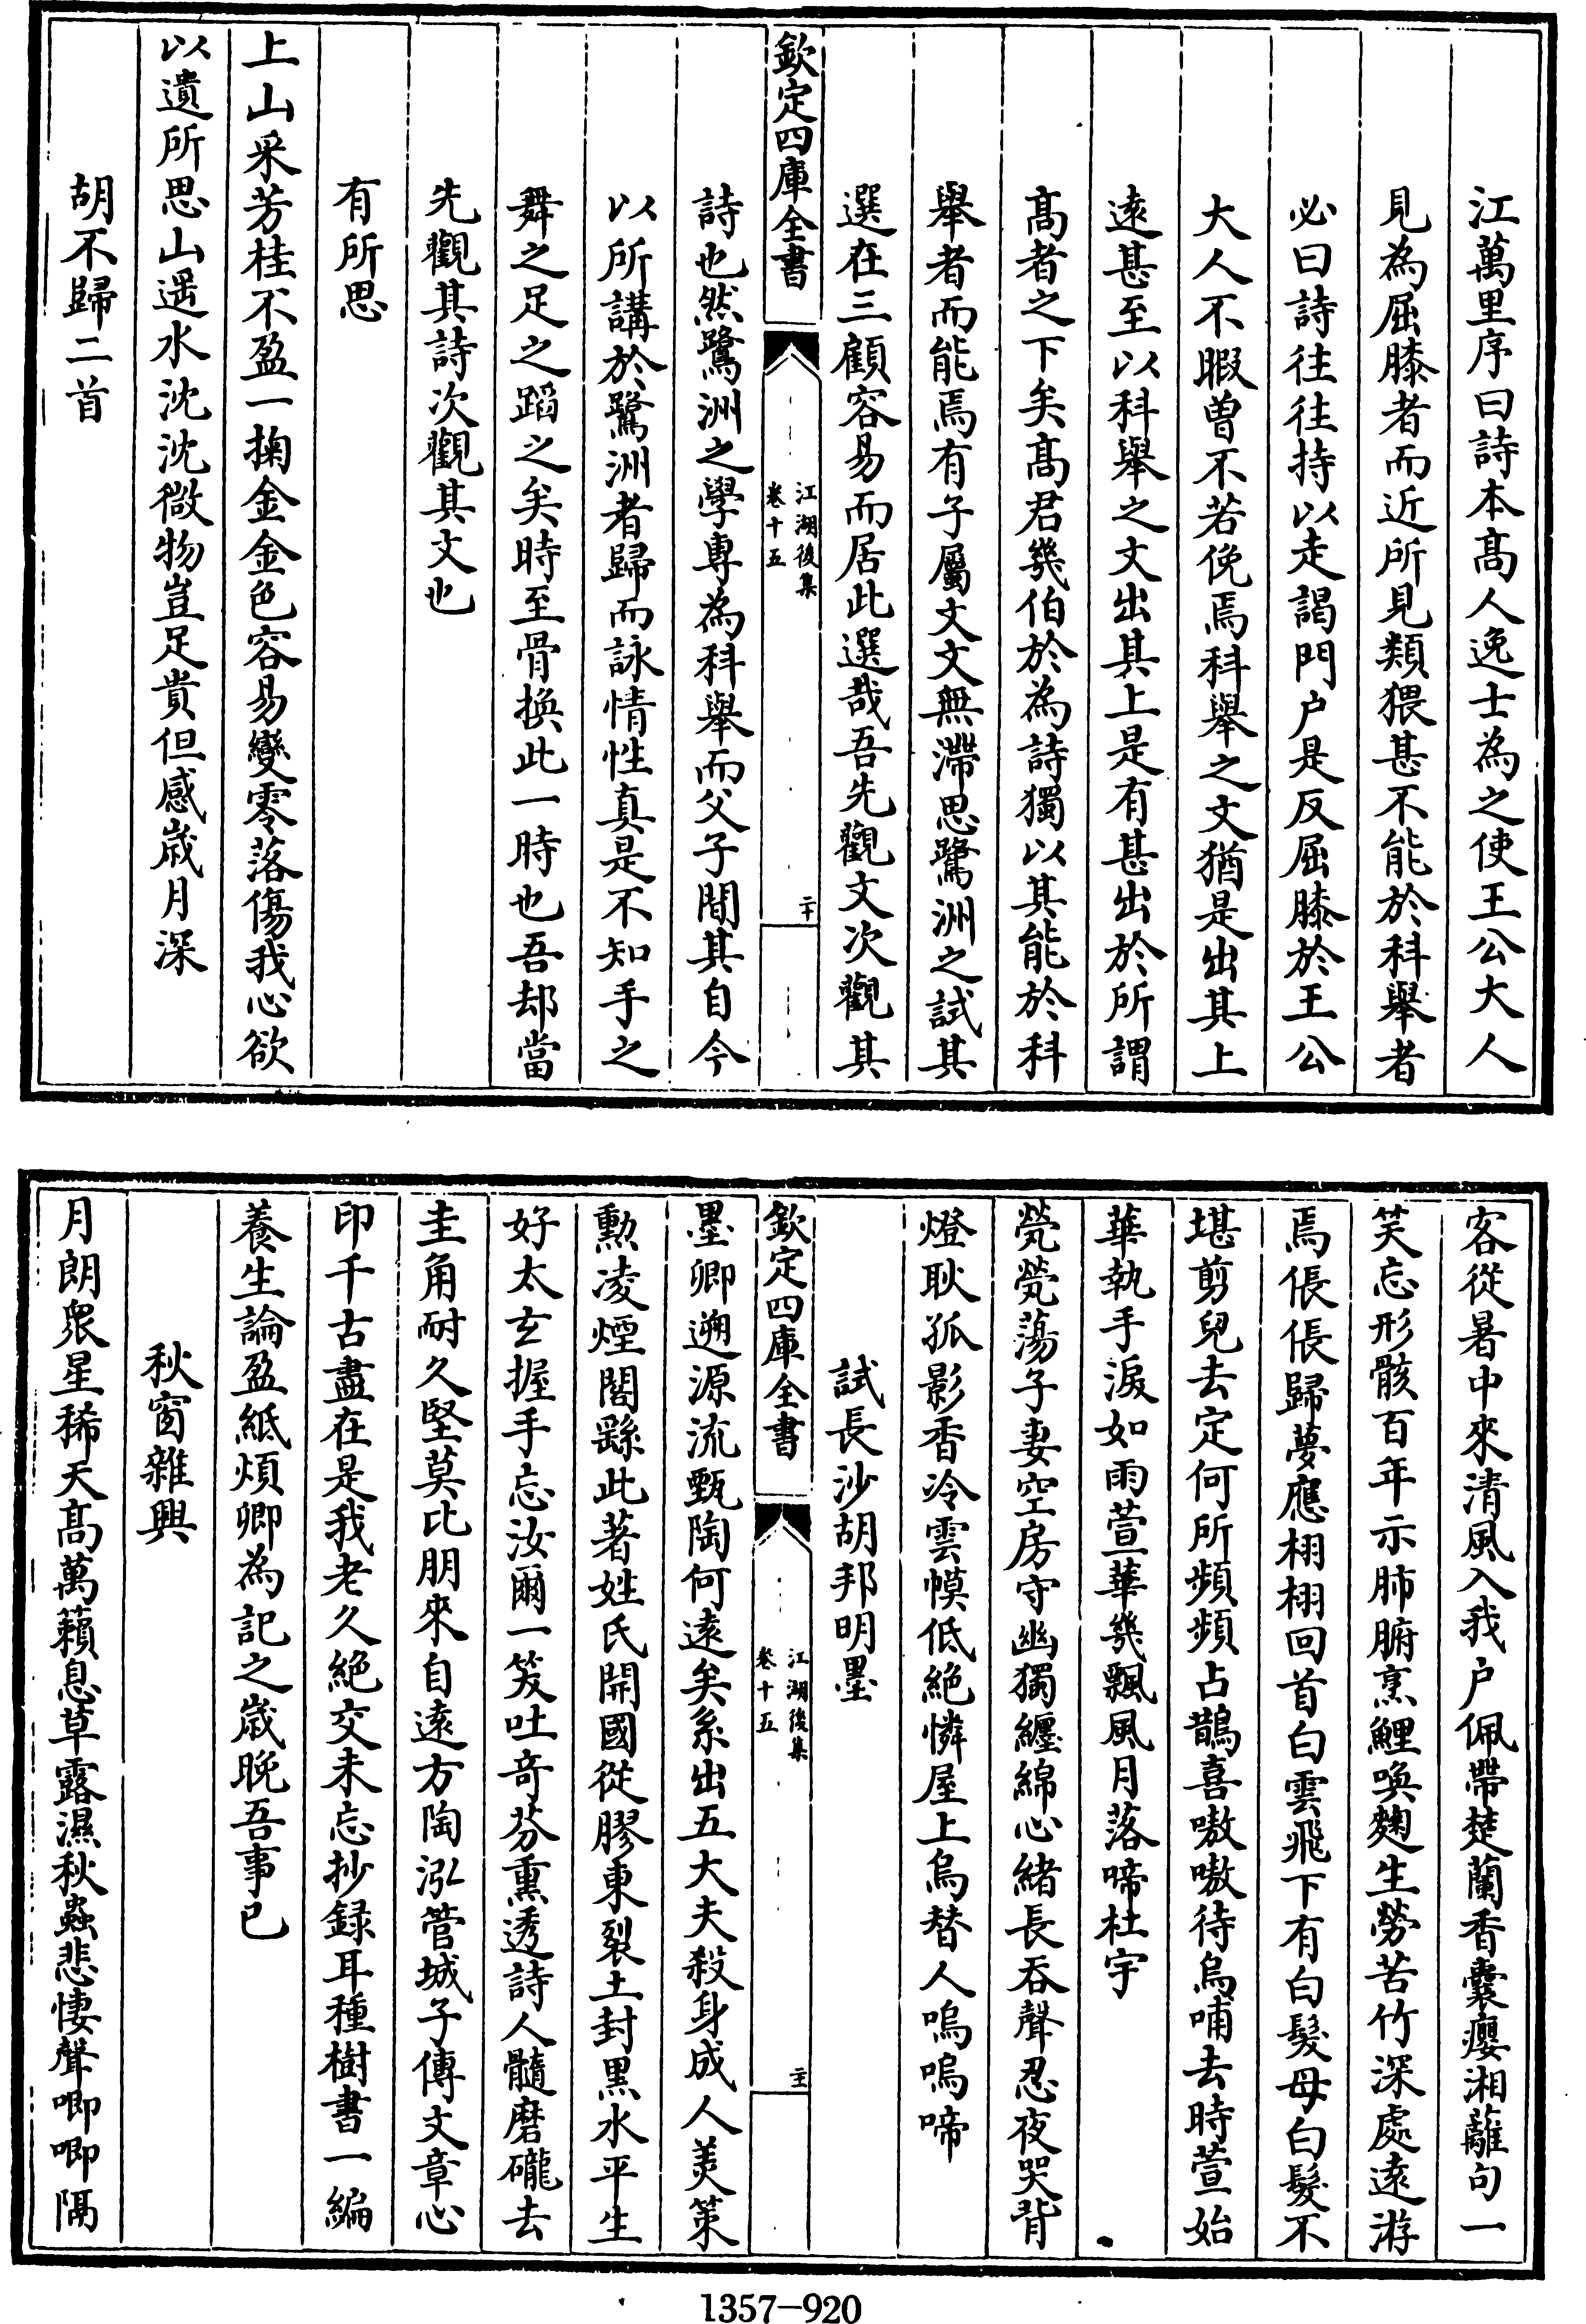 江萬里序曰詩本髙人逸士為之使王公大人
見為屈膝者而近所見類猥甚不能於科舉者
必曰詩往往持以走謁門户是反屈膝於王公
大人不暇曾不若俛焉科舉之文猶是出其上
逺甚至以科舉之文出其上是有甚出於所謂
髙者之下矣髙君㡬伯於為詩獨以其能於科
舉者而能焉有子屬文文無滯思鷺洲之試其
選在三顧容易而居此選哉吾先觀文次觀其
欽定四庫全書
江湖後集
卷十五
二十
詩也然鷺洲之學專為科舉而父子間其自今
以所講於鷺洲者歸而詠情性真是不知手之
舞之足之蹈之矣時至骨換此一時也吾却當
先觀其詩次觀其文也
有所思
上山采芳桂不盈一掬金金色容易變零落傷我心欲
以遺所思山遥水沈沈微物豈足貴但感歳月深
胡不歸二首
客從暑中來清風入我户佩帶楚蘭香囊瘿湘蘺句一
笑忘形骸百年示肺腑烹鯉喚麴生勞苦竹深處逺游
焉倀倀歸夢應栩栩回首白雲飛下有白髮母白髮不
堪剪兒去定何所頻頻占鵲喜嗷嗷待烏哺去時萱始
華執手淚如雨萱華㡬飄風月落啼杜宇
煢煢蕩子妻空房守幽獨纏綿心緒長吞聲忍夜哭背
燈耿孤影香冷雲幙低絶憐屋上烏替人嗚嗚啼
試長沙胡邦明墨
欽定四庫全書
江湖後集
卷十五
主
墨卿遡源流甄陶何逺矣系出五大夫殺身成人美策
勲凌煙閣繇此著姓氏開國從膠東裂土封黒水平生
好太玄握手忘汝爾一笑吐竒芬熏透詩人髓磨礲去
圭角耐久堅莫比朋來自逺方陶泓管城子傳文章心
印千古盡在是我老久絶交未忘抄録耳種樹書一編
養生論盈紙煩卿為記之歳晩吾事已
秋窗雜興
月朗衆星稀天髙萬籟息草露濕秋蟲悲悽聲唧唧隔
1357-920